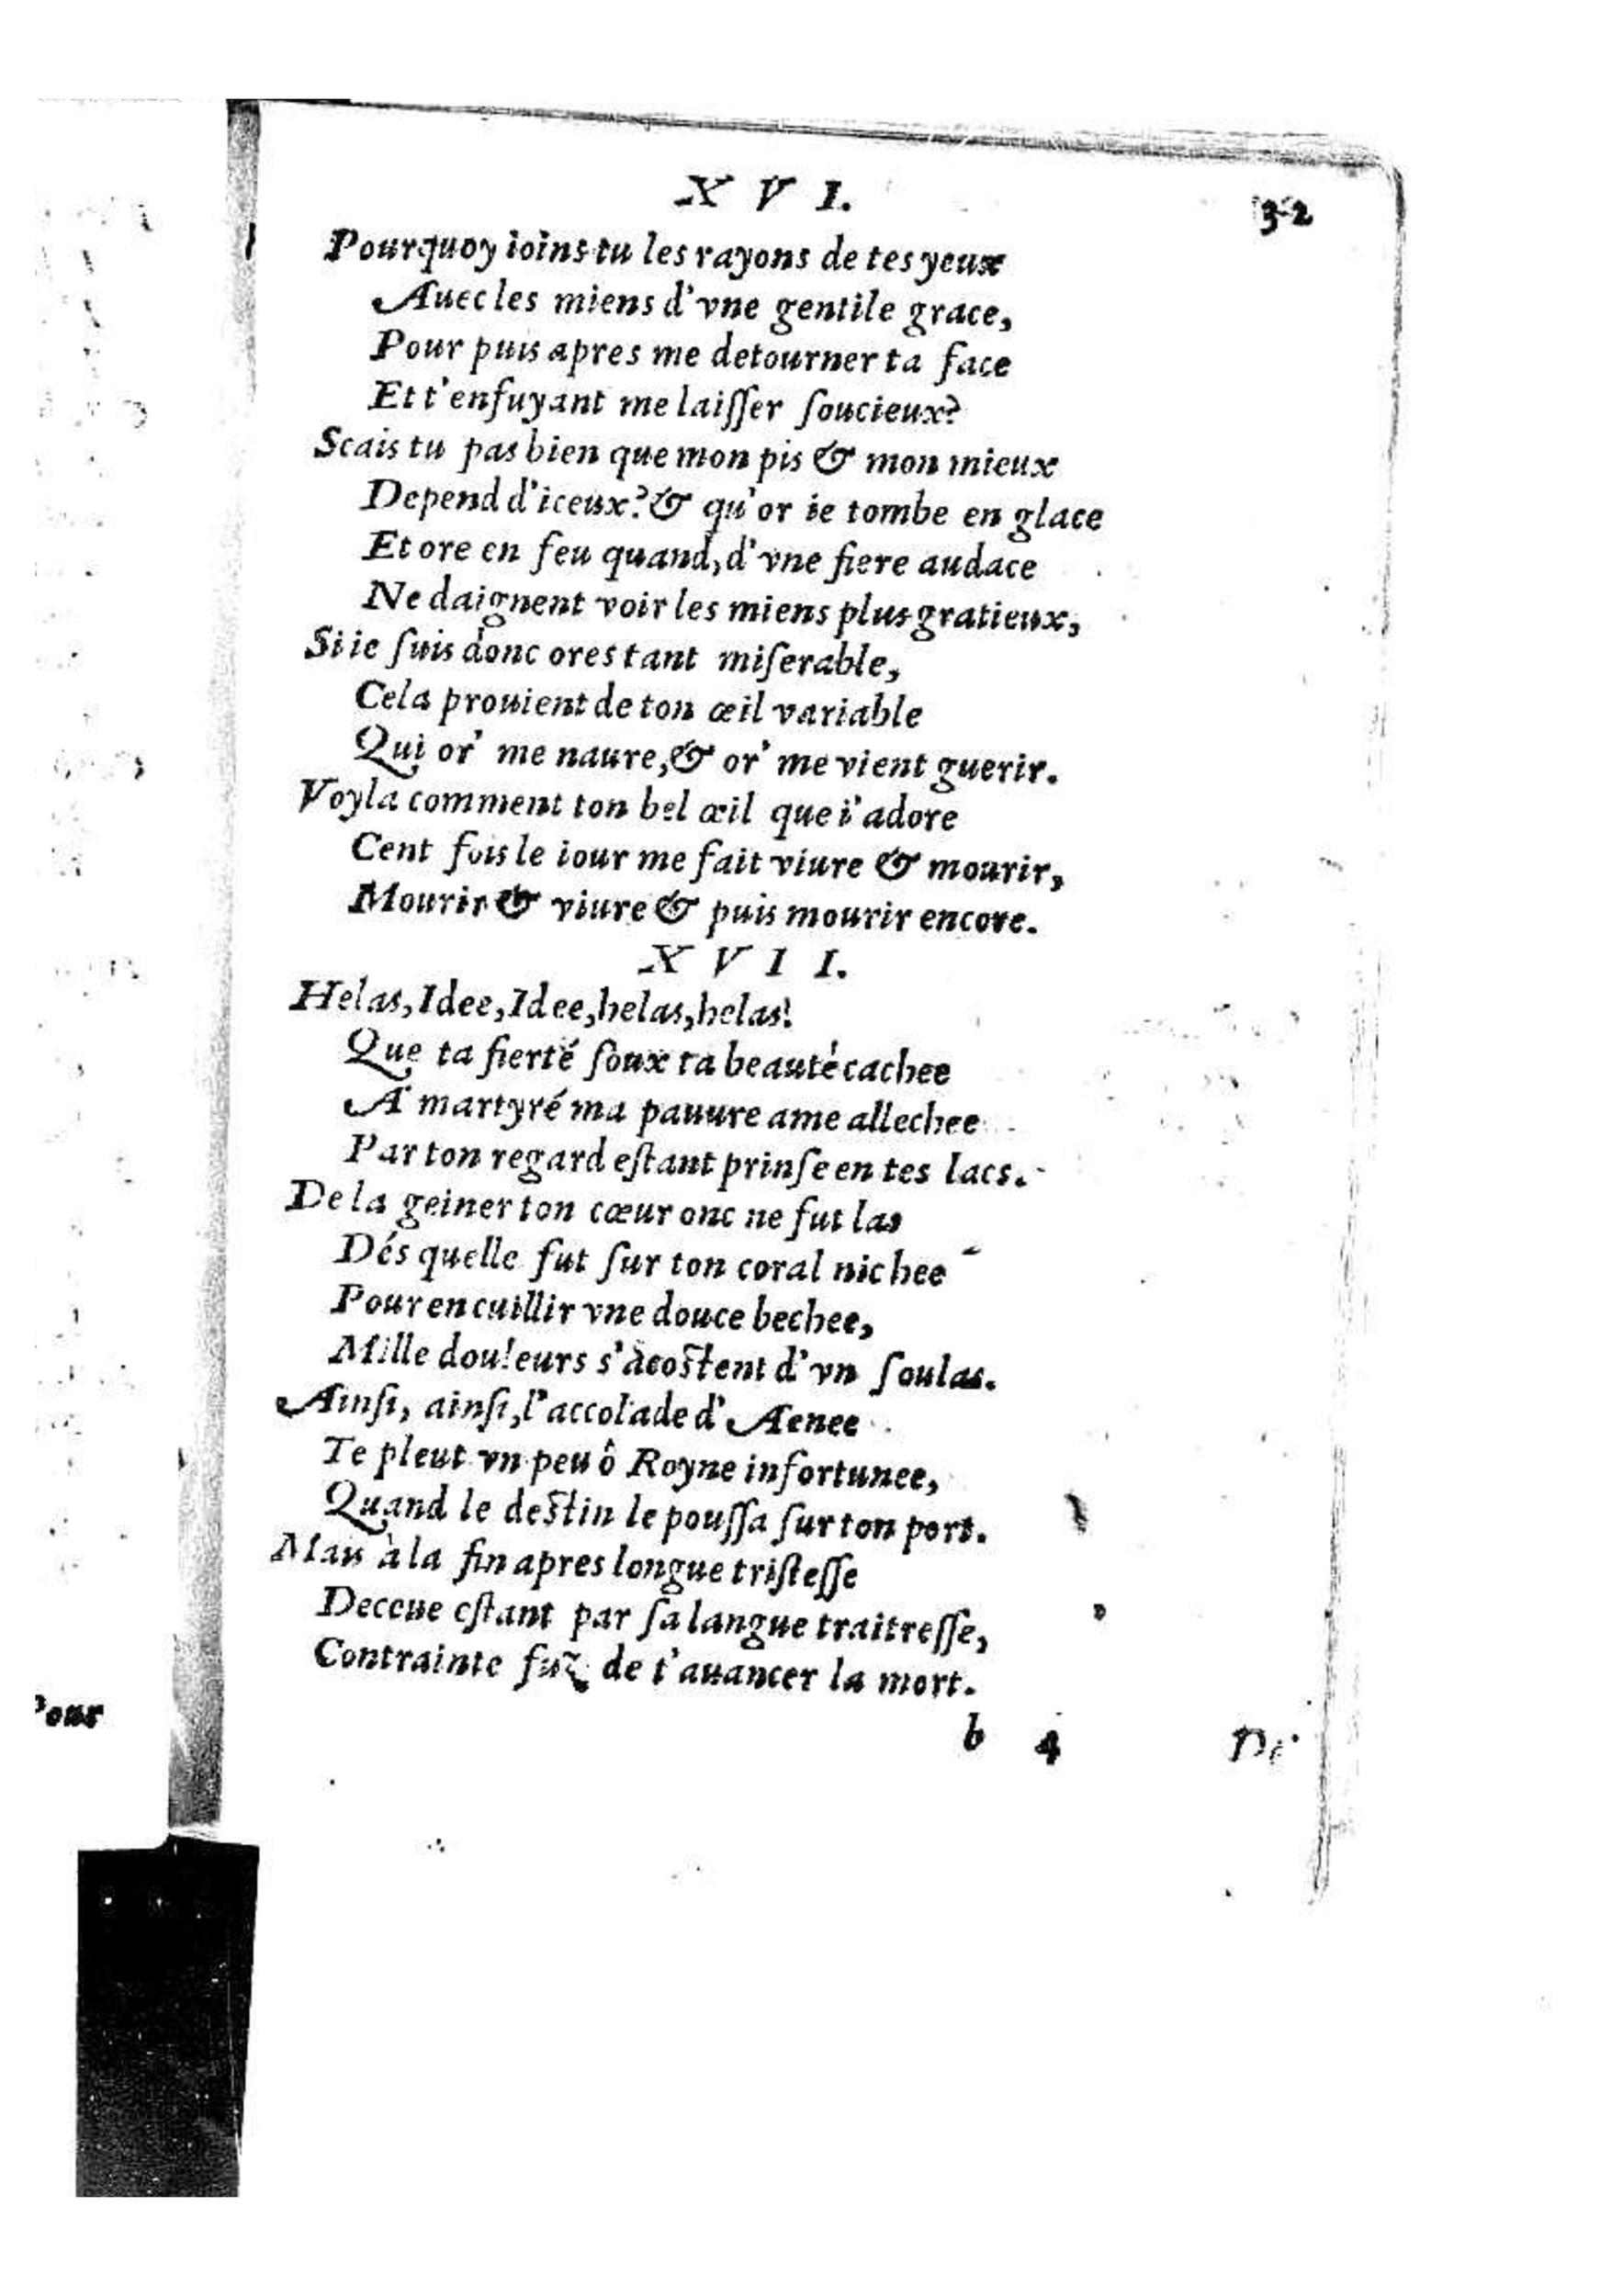 X V I.
32
Pourquoy ioins-tu les rayons de tes yeux
Auec les miens d'vne gentile grace,
Pour puis apres me detourner ta face
Et t'enfuyant me laiſſer ſoucieux?
Scais tu pas bien que mon pis & mon mieux
Depend d'iceux? & qu'or ie tombe en glace
Et ore en feu quand, d'vne fiere audace
Ne daignent voir les miens plus gratieux,
Si ie ſuis donc ores tant miſerable,
Cela prouient de ton œil variable
Qui or' me naure, & or' me vient guerir.
Voyla comment ton bel œil que i'adore
Cent fois le iour me fait viure & mourir,
Mourir & viure & puis mourir encore.
X V I I.
Helas, Idee, Idee, helas, helas!
Que ta fierté ſoux ta beauté cachee
A martyré ma pauure ame allechee
Par ton regard eſtant prinſe en tes lacs.
De la geiner ton cœur onc ne fut las
Dés quelle fut ſur ton coral nichee
Pour en cuillir vne douce bechee,
Mille douleurs s'acoſtent d'vn ſoulas.
Ainſi, ainſi, l'accolade d'Aenee
Te pleut vn peu ô Royne infortunee,
Quand le deſtin le pouſſa ſur ton port.
Mais à la fin apres longue triſteſſe
Deceue eſtant par ſa langue traitreſſe,
Contrainte fuz de t'auancer la mort.
b 4
Pour